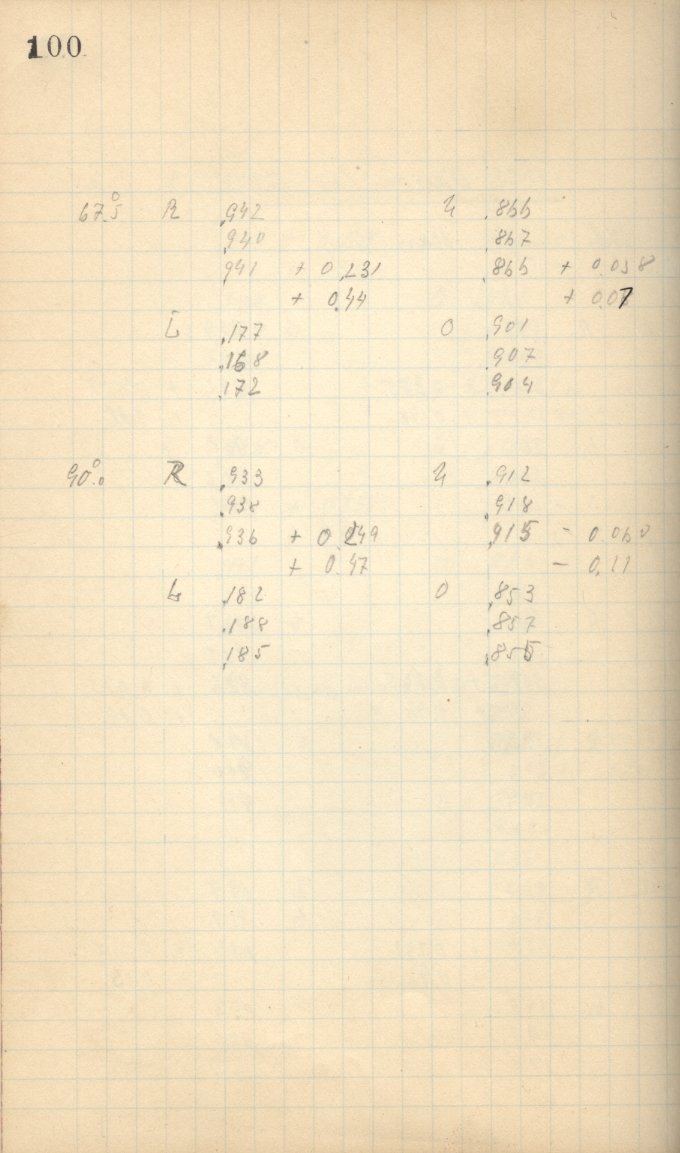 100
67°.5 R .942 U .866
.940 .867
.941 + 0.231 .866 + 0.038
+ 0.44 + 0.07
L .177 O .901
.168 .907
.172 .904
90°.0 R .933 U .912
.938 .918
.936 + 0.249 .915 - 0.060
+ 0.47 - 0.11
L .182 O .853
.188 .857
.185 .855